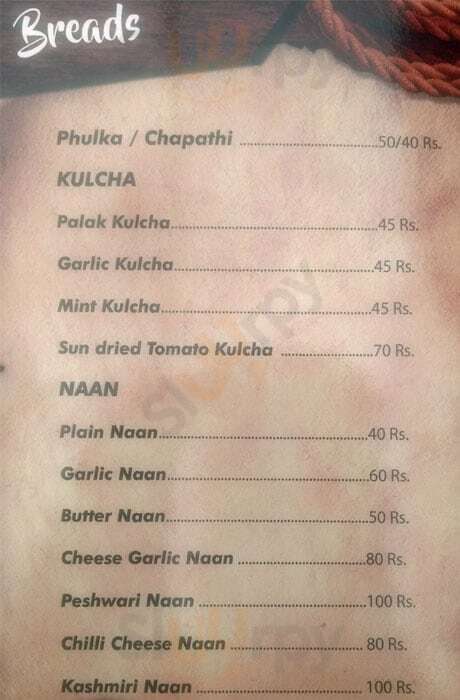 Breads
Phulka / Chapathi ........................50/40 Rs.
KULCHA
Palak Kulcha....................................45 Rs.
Garlic Kulcha...................................45 Rs.
Mint Kulcha.....................................45 Rs.
Sun dried Tomato Kulcha ................70 Rs.
NAAN
Plain Naan.....................................40 Rs.
Garlic Naan....................................60 Rs.
Butter Naan....................................50 Rs.
Cheese Garlic Naan .......................80 Rs.
Peshwari Naan ..............................100 Rs.
Chilli Cheese Naan ........................ 80 Rs.
Kashmiri Naan .............................. 100 Rs.